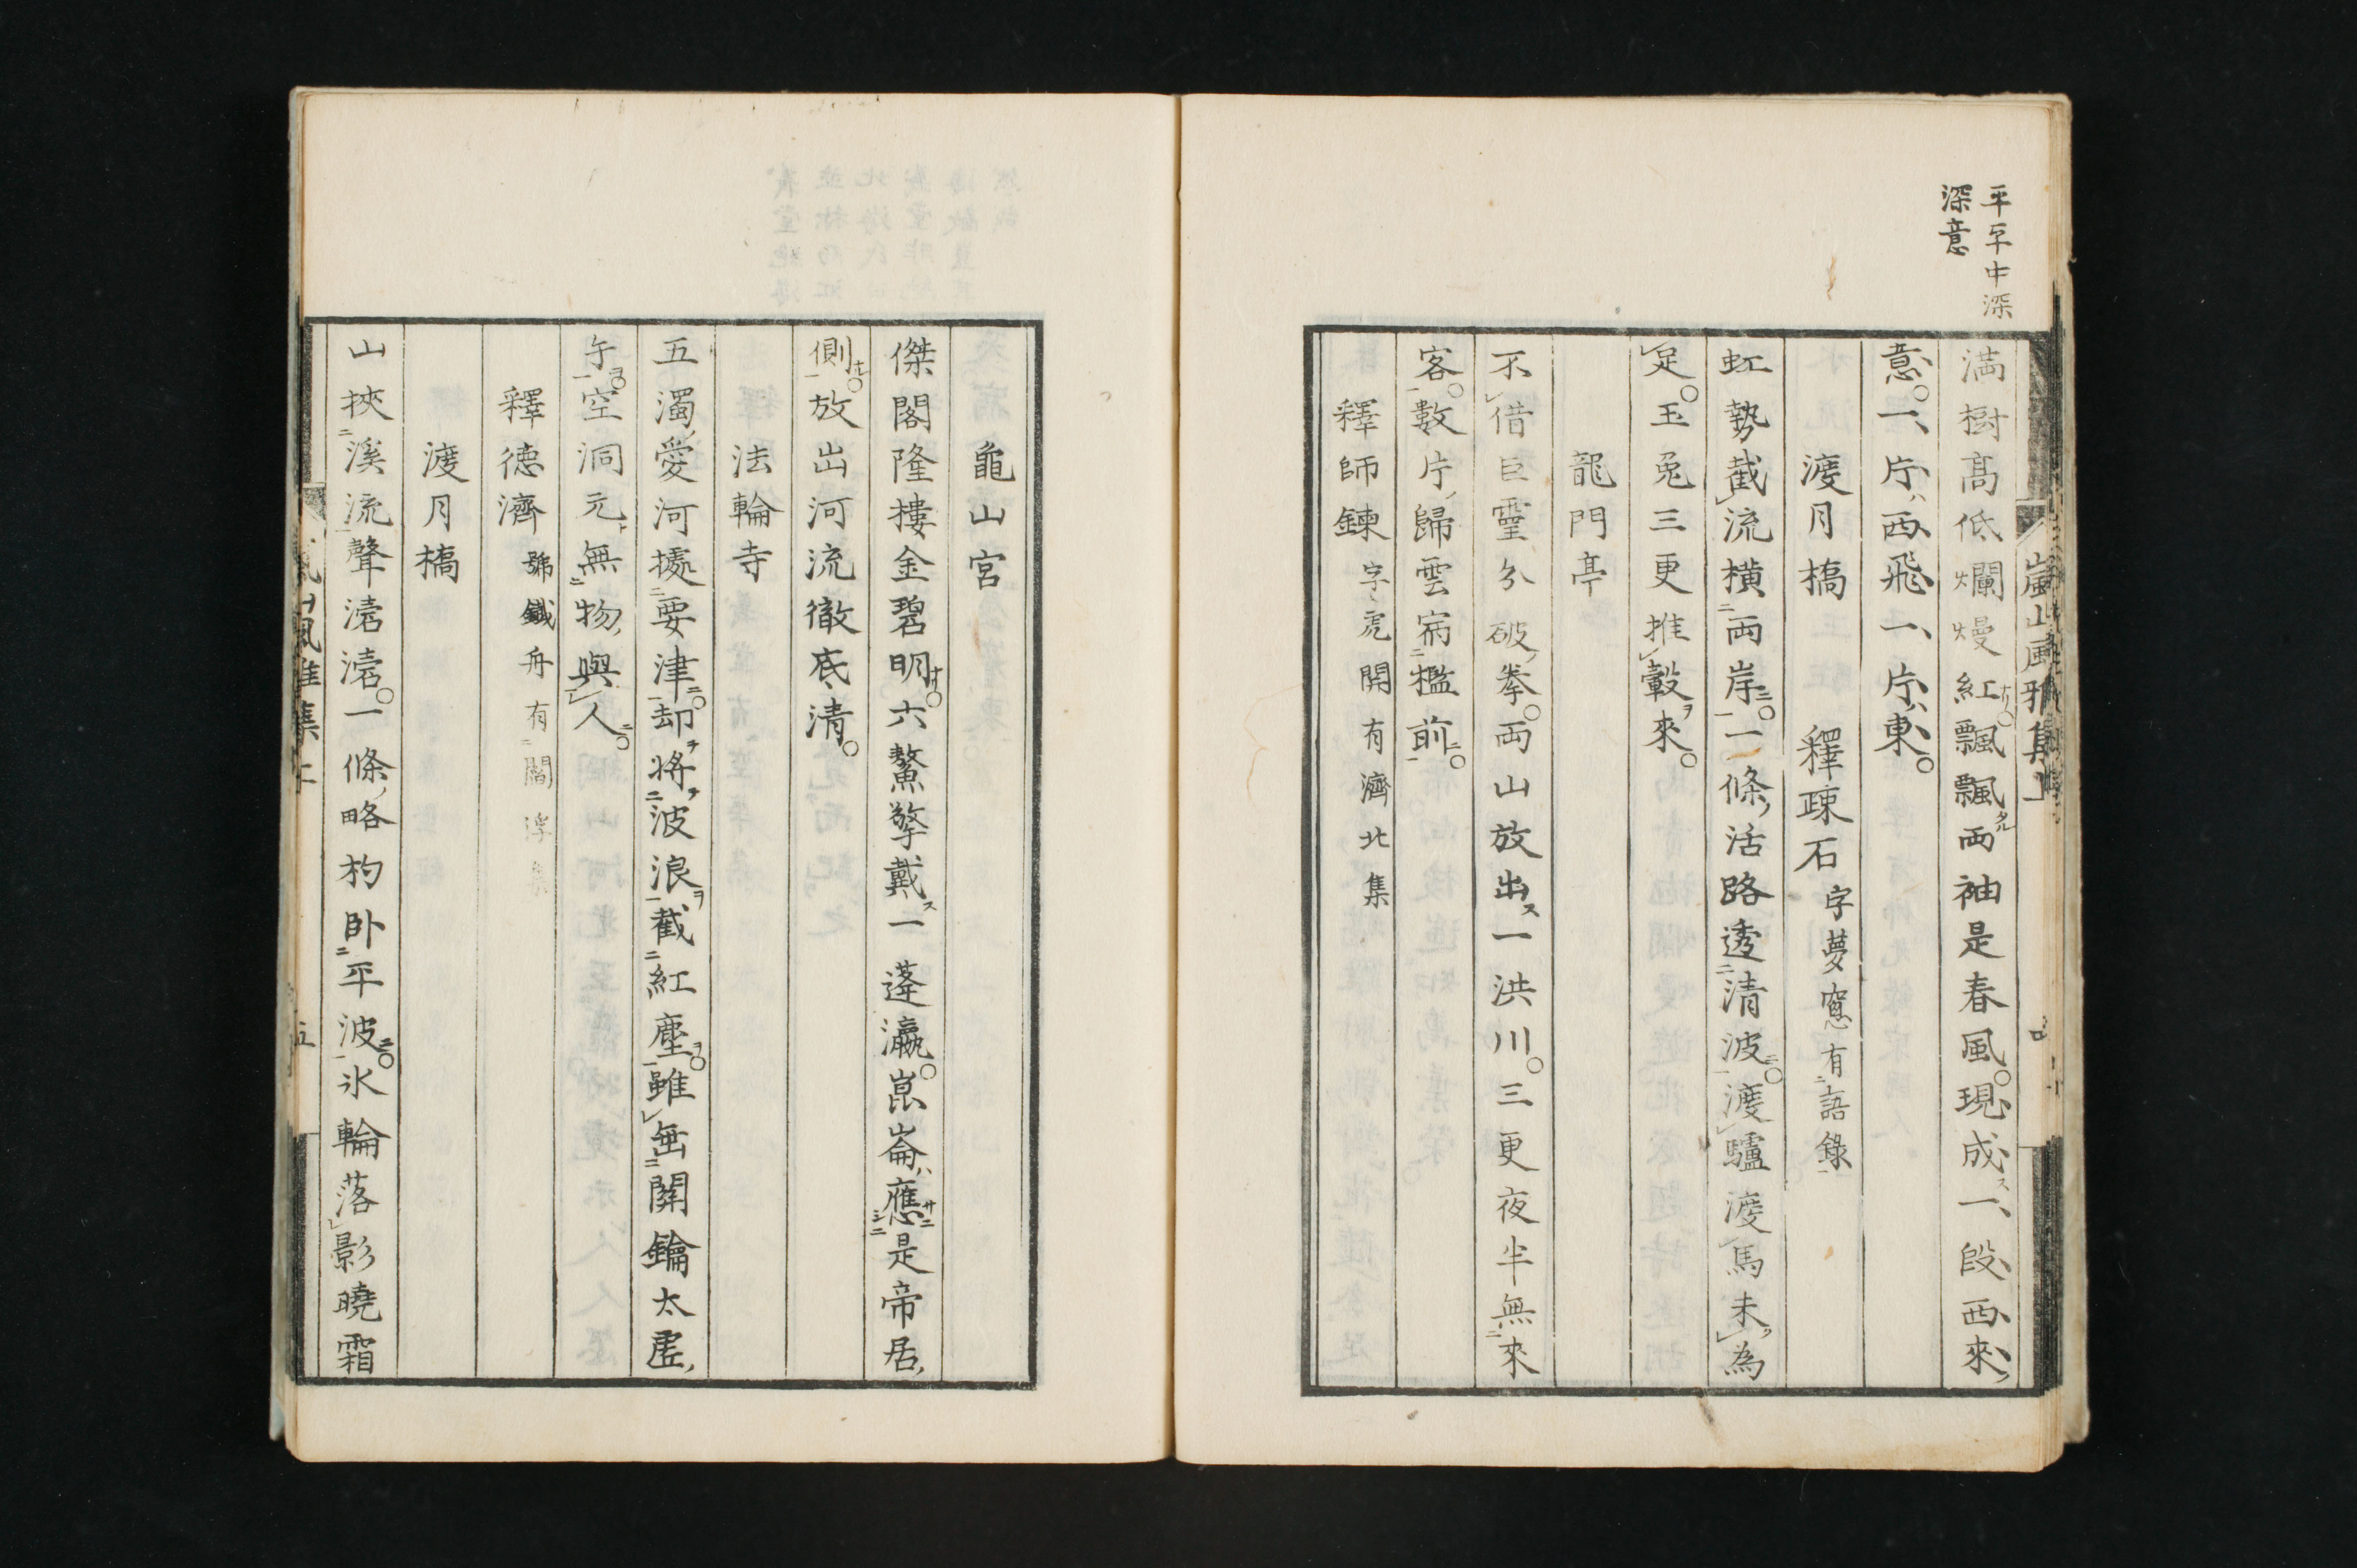 平平中深
深意
嵐山風雅集上
満樹髙低爛熳紅飄飄両袖是春風現成一段西來
意一片西飛一片東
渡月橋　釋疎石字夢窓有語錄
虹勢截流横両岸一條活路透清波渡驢渡馬未為
足玉兎三更推轂來
龍門亭
不借巨靈分破拳両山放出一洪川三更夜半無來
客數片歸雲宿檻前
釋師鍊字虎關有濟北集
龜山宮
傑閣隆樓金碧明六鰲擎戴一蓬瀛崑崙應是帝居
側放出河流徹底清
法輪寺
五濁愛河據要津却將波浪截紅塵雖無關鑰太虚
午空洞元無物與人
釋德濟號鐵舟有閻浮集
渡月橋
山挾溪流聲濇濇一條略杓卧平波氷輪落影曉霜
嵐山風雅集上
五